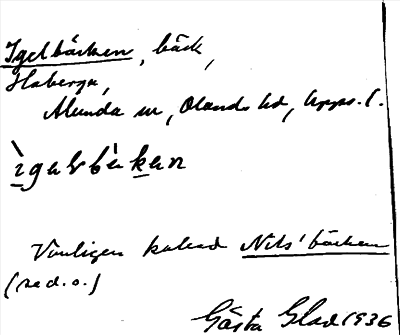 Igelbäcken, bäck,
Haberga,
Alunda sn, Olands hd, Upps. l.
ìgəlbä̀kən
Vanligen kallad Nils' bäcken
(se d.o.)
Gösta Glad 1936